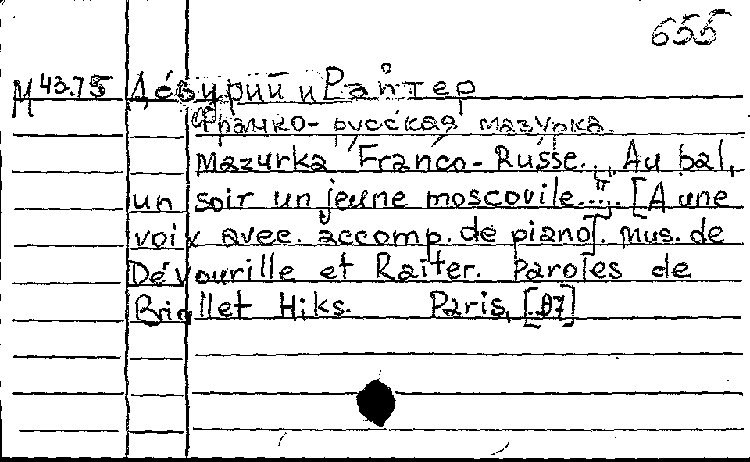 655
М 43.75 Девурий и Райтер
Франко-русская мазурка.
Mazurka Franco-Russe... "Au bal,
un soir un jeune moscovile...". [A une
voix avec. accomp. de piano]. Mus. de
Devourille et Raiter. Paroles de
et Hiks. Paris,